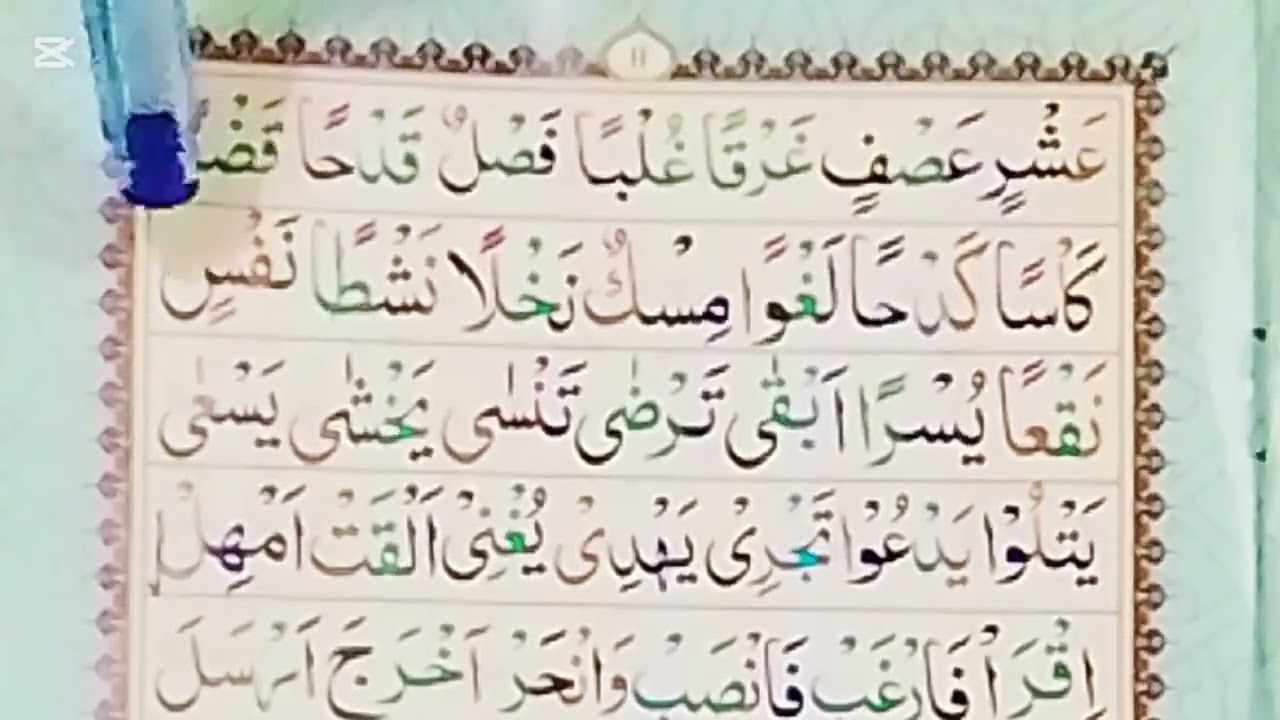 ١١
عَشْرٍ عَصْفٍ غَرْقًا غُلْبًا فَصْلٌ قَدْحًا
كَأْسًا كَدْحًا لَغْوًا مِسْكٌ نَخْلًا نَشْطًا نَفْسٍ
نَقْعًا يُسْرًا اَبْقٰى تَرْضٰى تَنْسٰى يَخْشٰى يَسْعٰى
يَتْلُوْا يَدْعُوْا تَجْرِىْ يَهْدِىْ يُغْنِىْ اَلْقَتْ اَمْهِلْ
اِقْرَاْ فَارْغَبْ فَانْصَبْ وَانْحَرْ اَخْرَجَ اَرْسَلَ